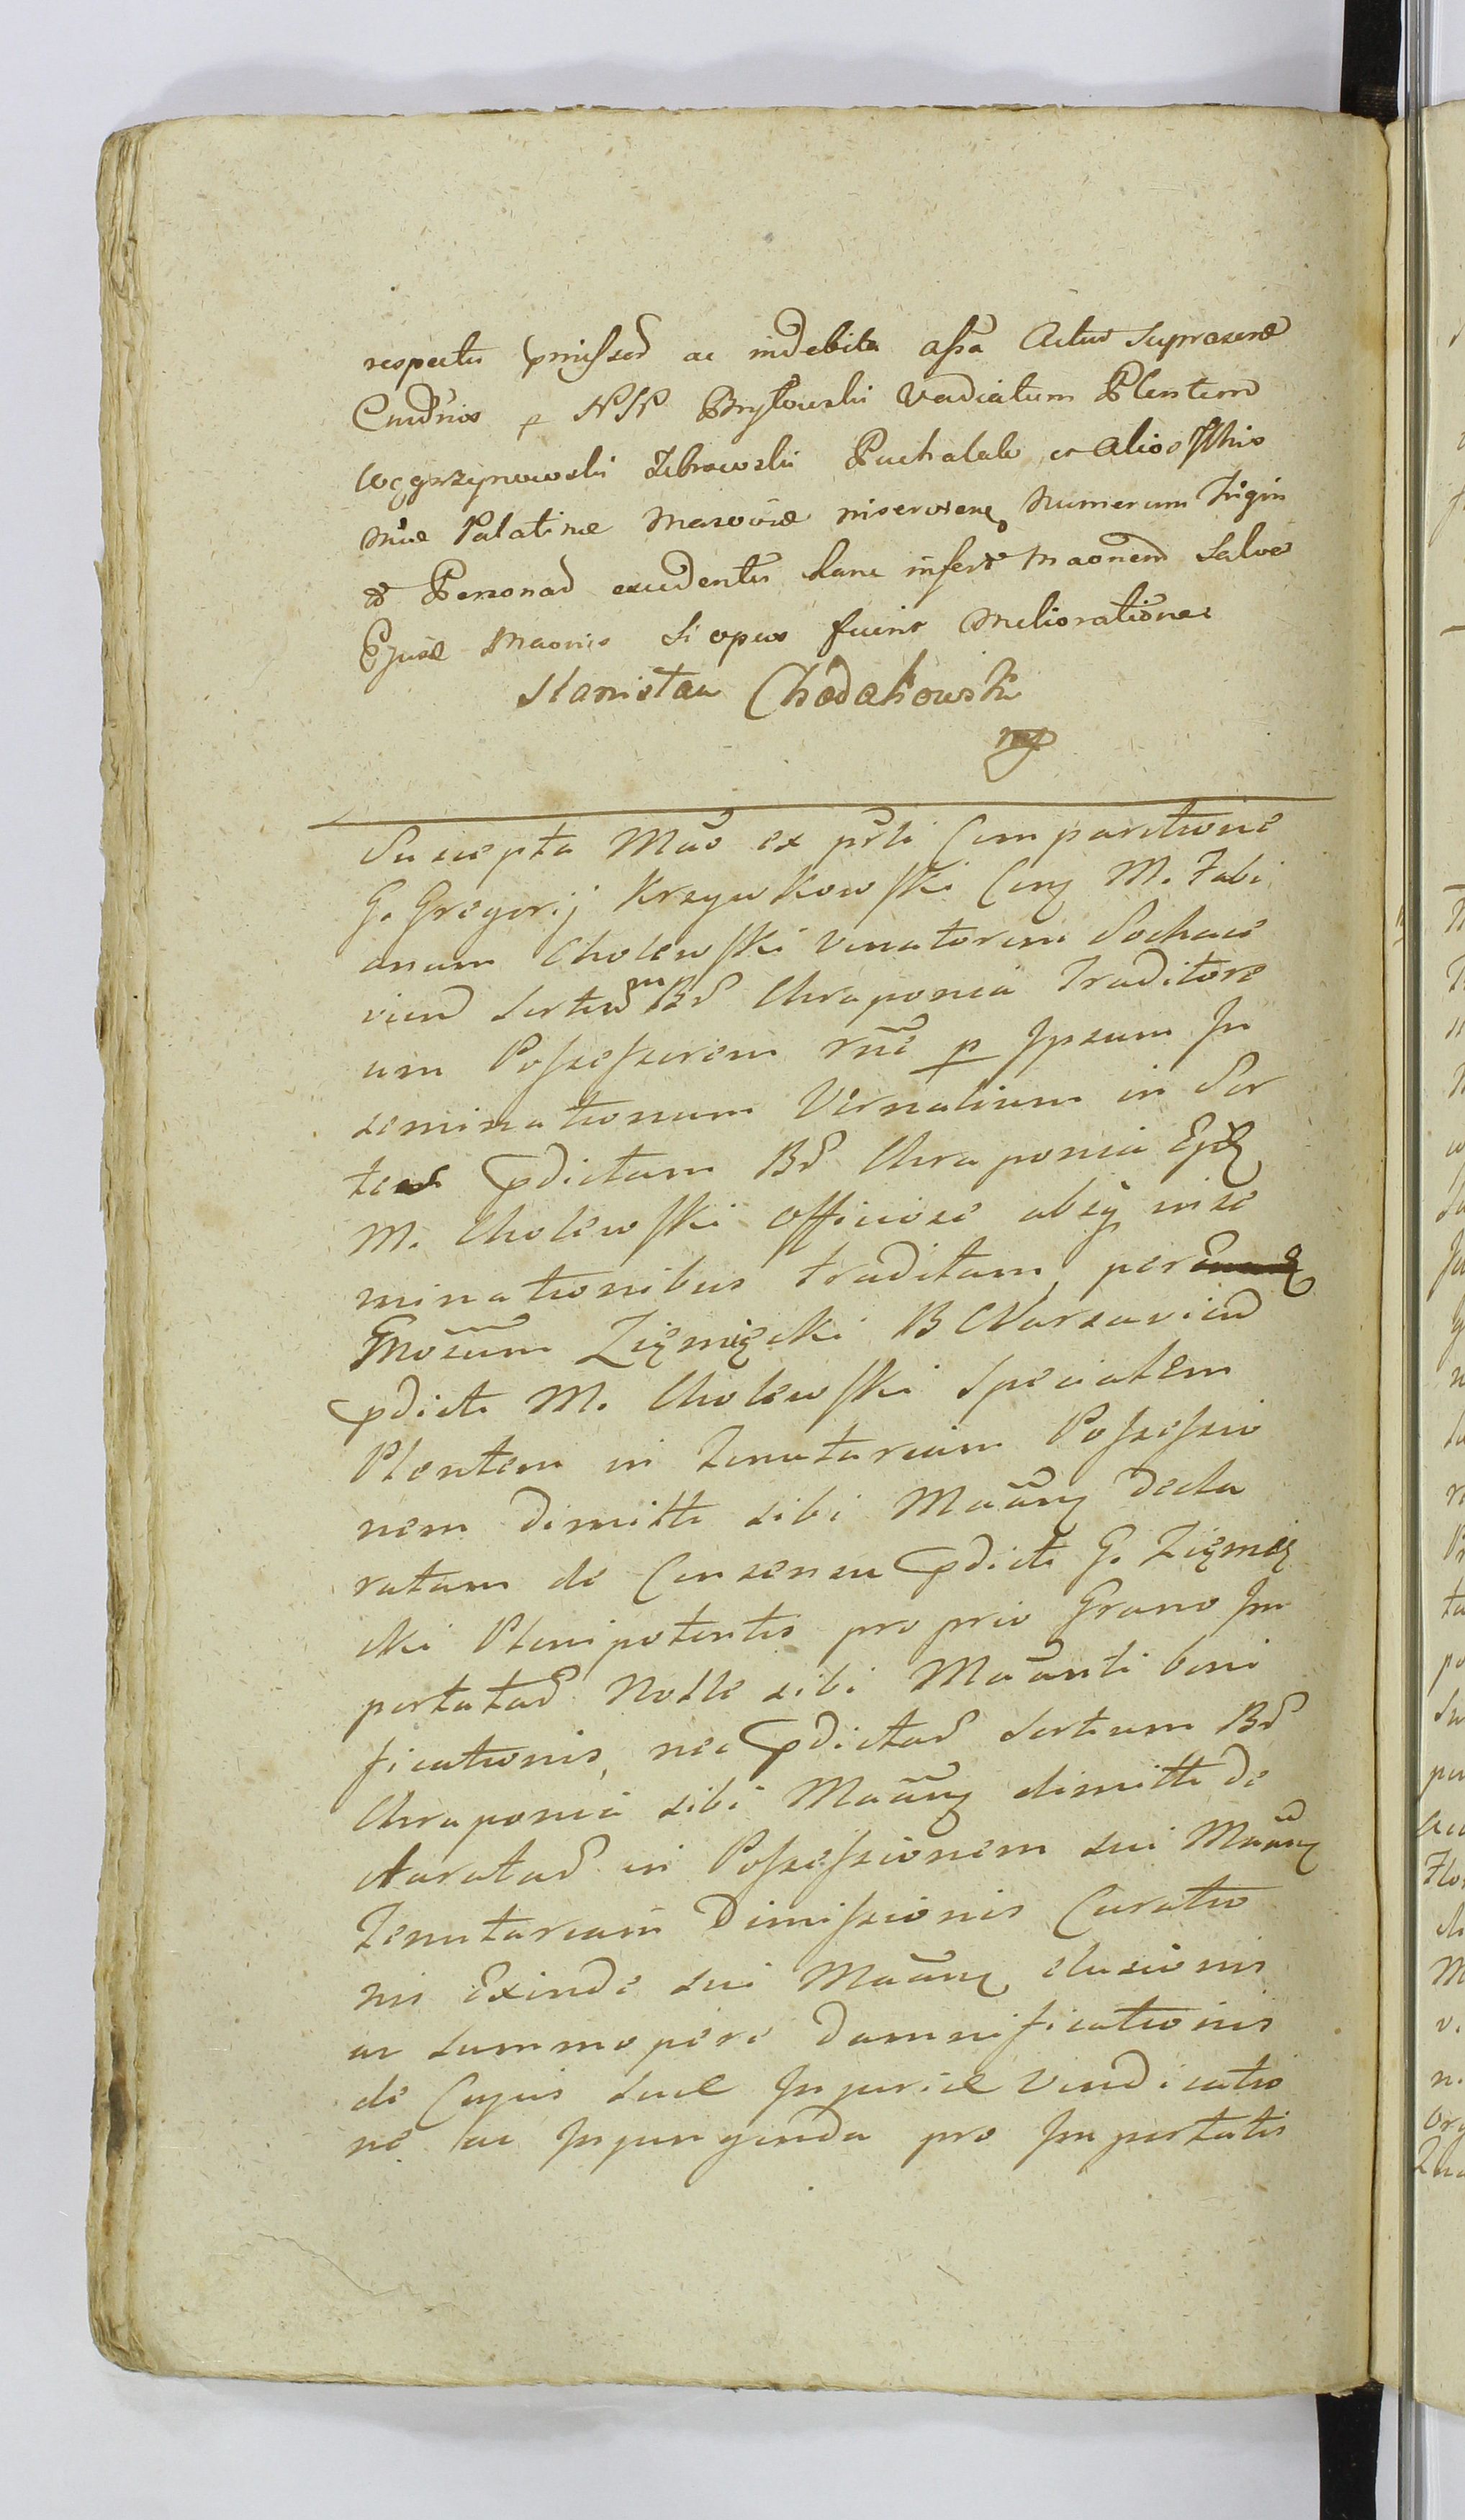 respectu pmissor ac indebita assa Actus Supraser
Cundnio p NN Brylowski Vadiatum Plentem
Węgrzynowski Zebrowski Puchalski et alios
Palatinæ Masoviæ numerum Trigin
Personas excedentes hanc infert Maonem Salva
Ejusd Maonis Si opus fuerit Melioratione
Stanisław Chodakowski
mp
Suscepta Mao ex prti Comparitione
G. Gregorij Krzywkowski Cong M. Fabi
anum Cholewski Venatorem Sochace
vien Sortium Br Chraponia Traditore
um Possessorem rne p Ipsum In
seminationum Vernalium in Sor
tes pdictam Br Chraponia Ejd
M. Cholewski officiose absq inse
minationibus traditam, per
Gnosum Zięmięcki B Warsavien
pdicti M. Cholewski Specialem
Plentem in Tenutariam Possessio
nem dimitti sibi Maanq decla
ratam de Consensu pdicti G. Ziemię
cki Plenipotentis proprio Grano Im
portatar Nolle sibi Maanti boni
ficationis, nec pdictar Sortium Br
Chraponia sibi Maanq dimitti de
claratar in Possessionem sui Maanq
Tenutariam Dimissionis Curatio
nis Exinde sui Maanq elusionis
ac summopere damnificationis
de Cujus suæ Injuriæ Vindicatio
ne ac Injungenda pro Importatis